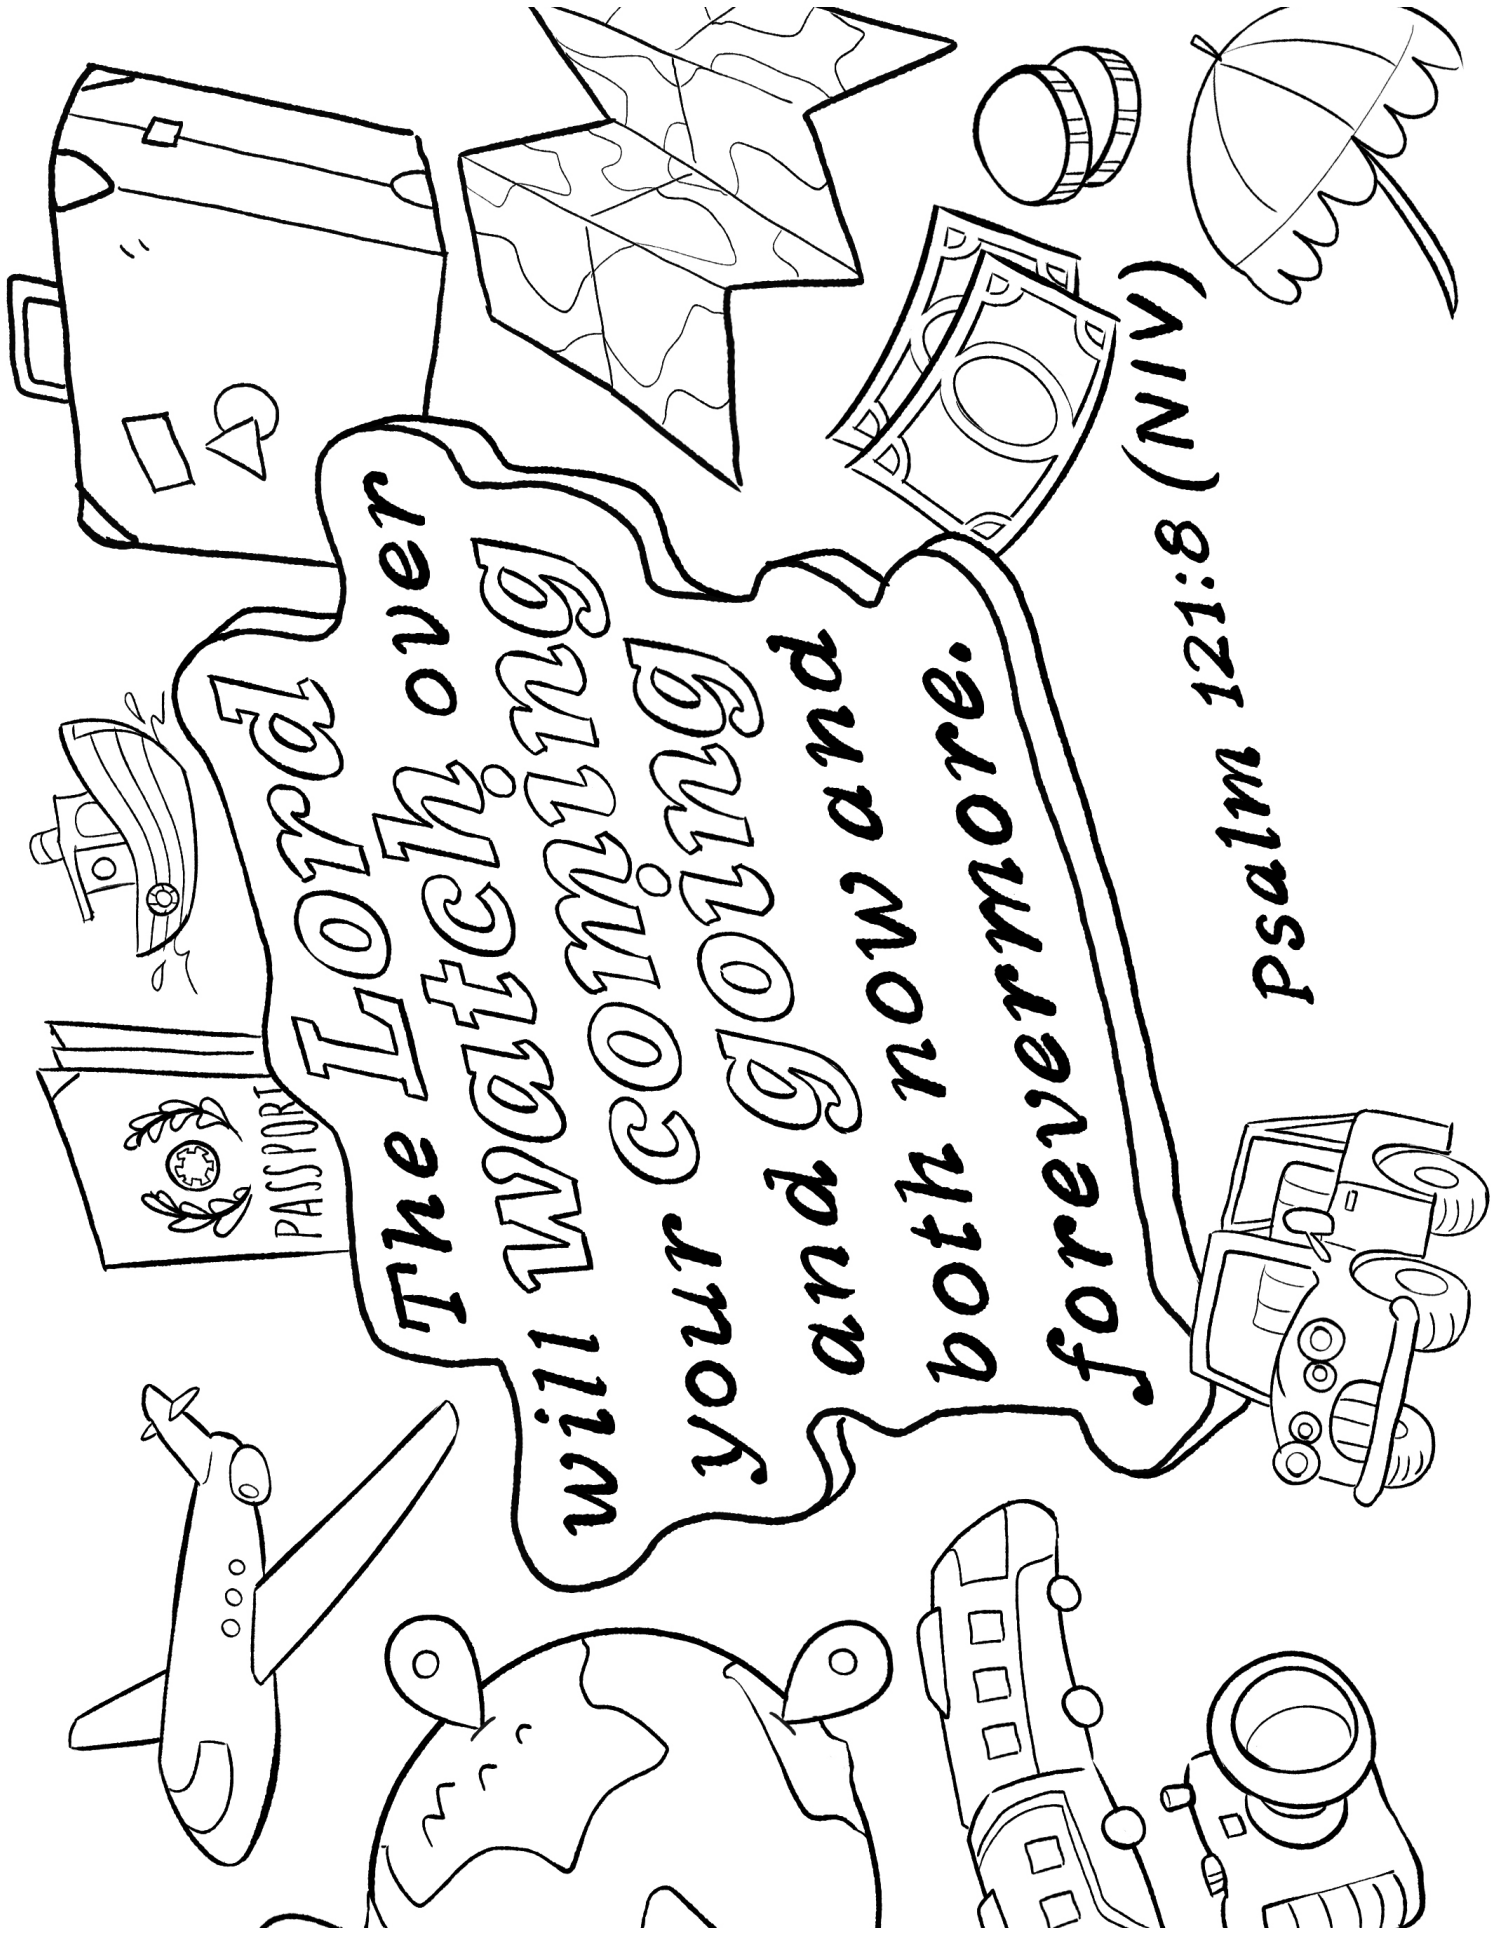 PASSPORT
The Lord
will watch over
your coming
and going
both now and
forevermore.
Psalm 121:8 (NIV)